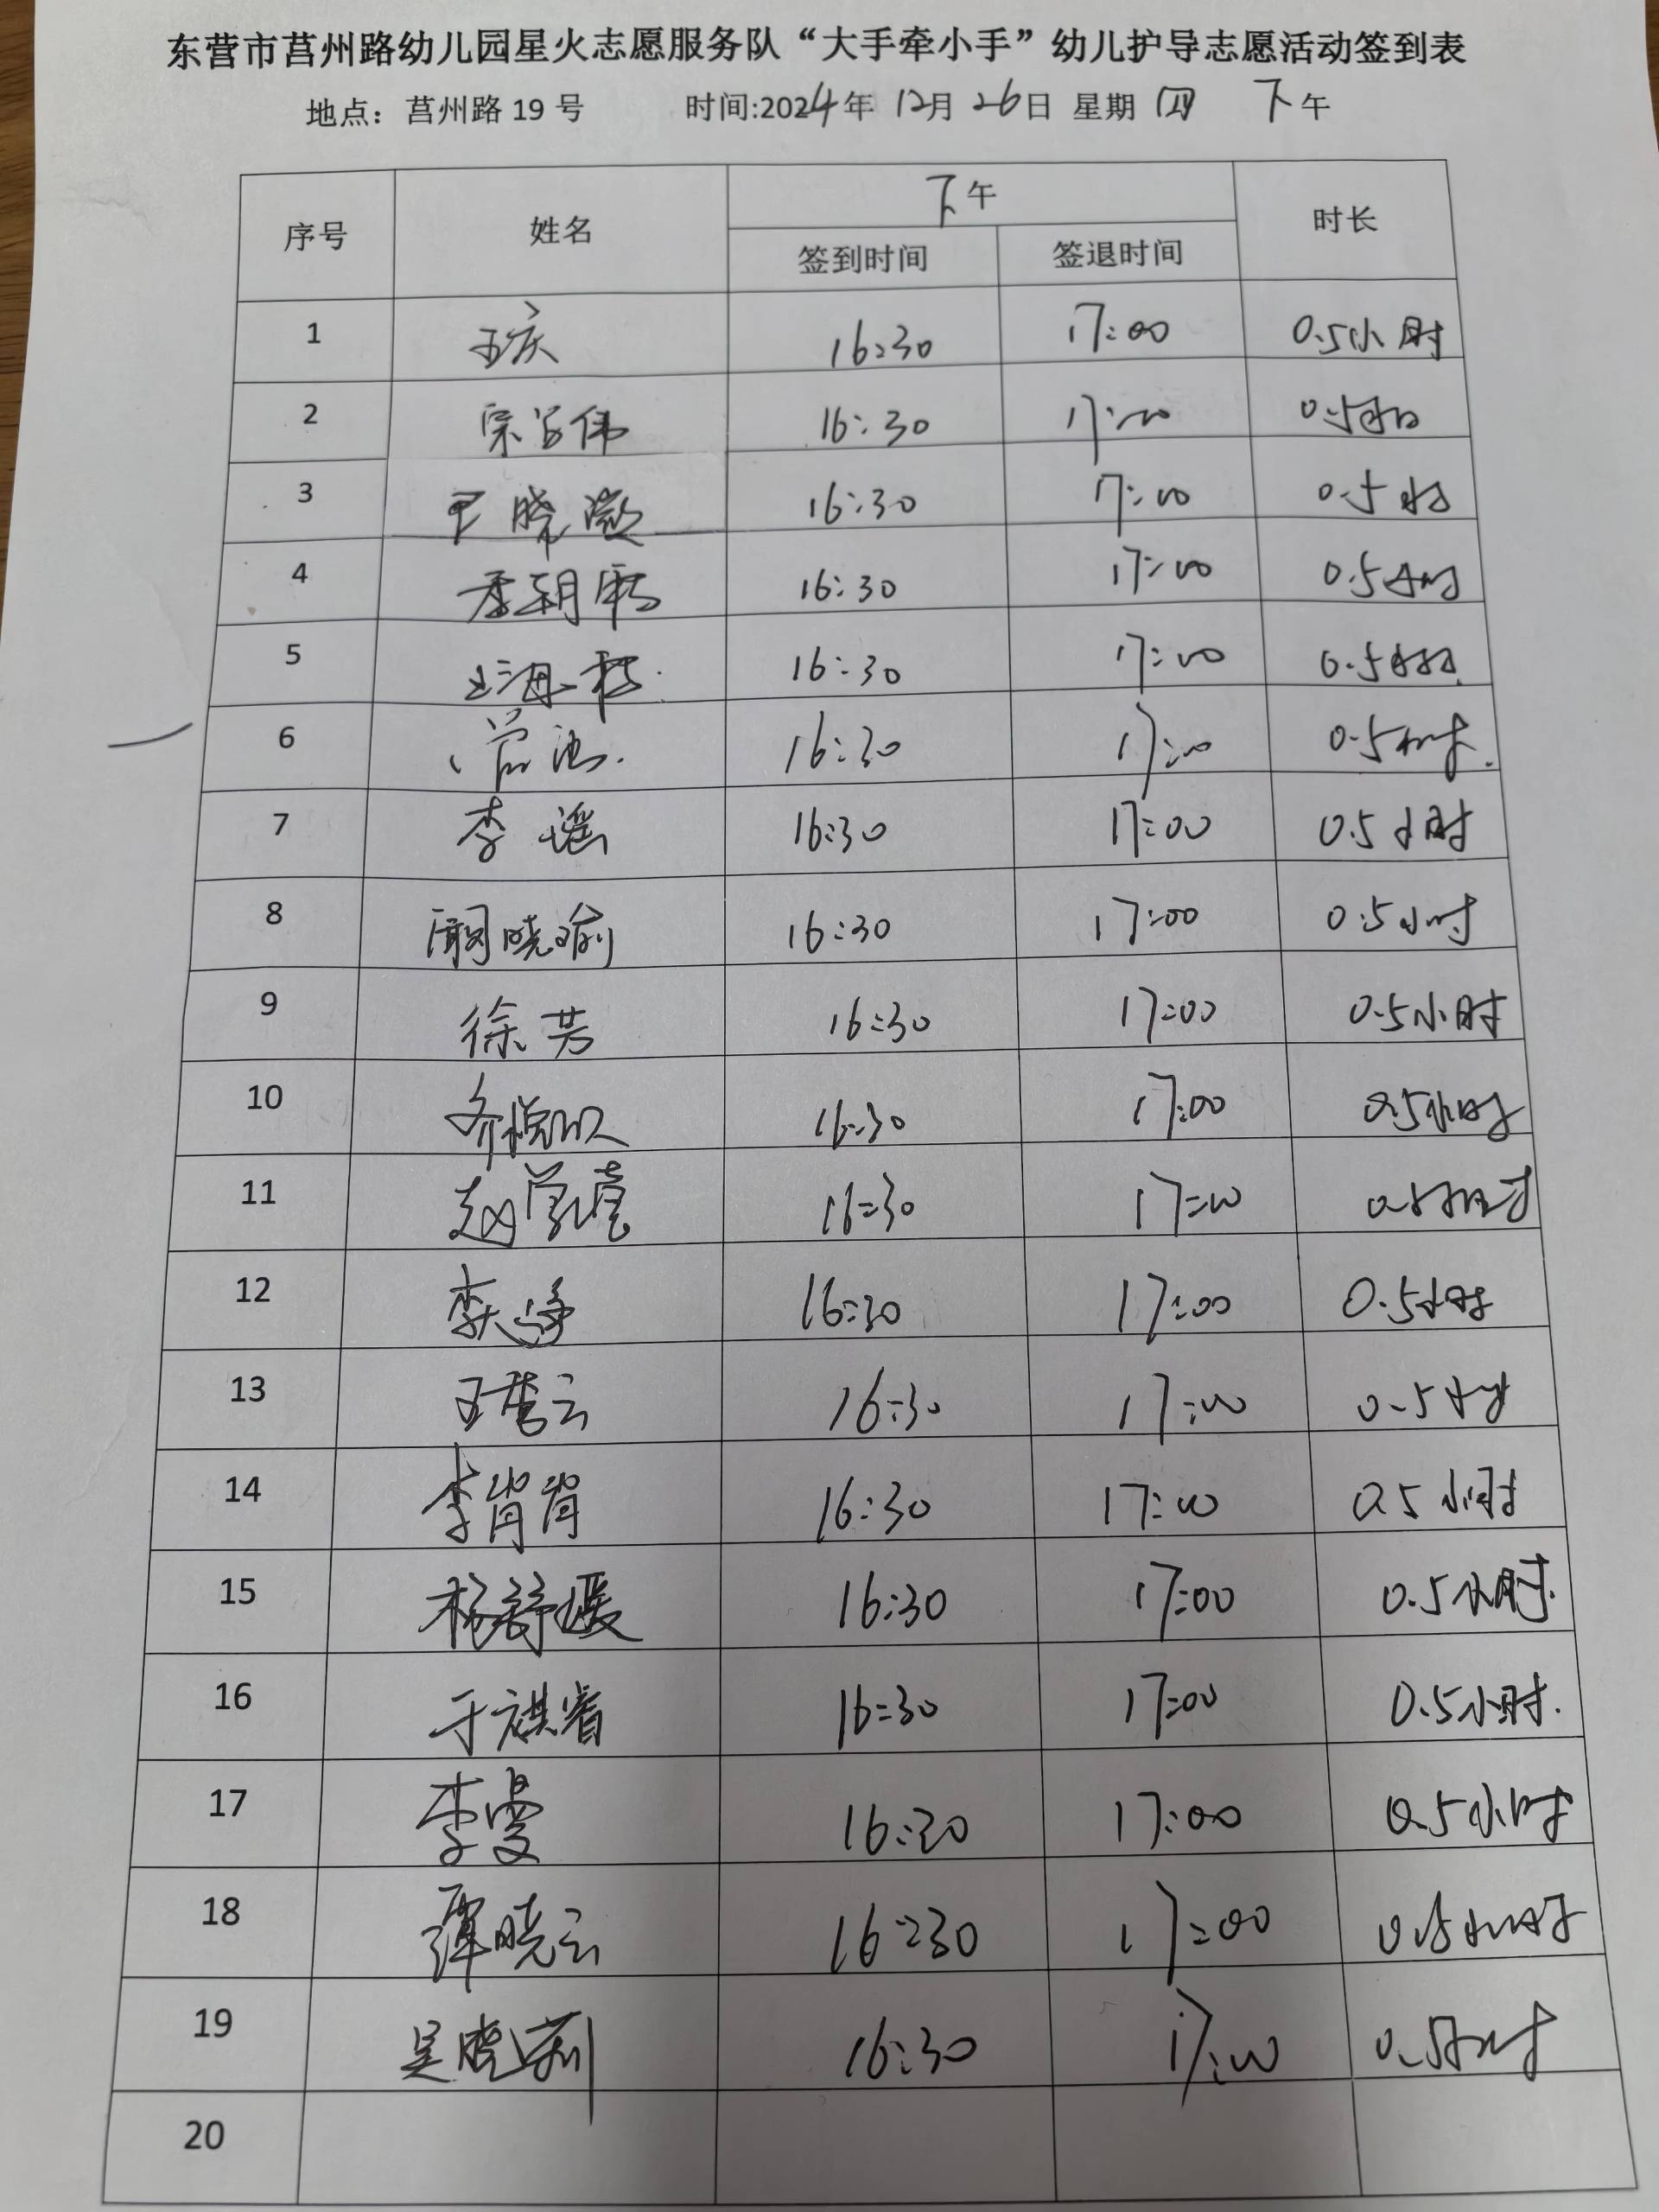 东营市莒州路幼儿园星火志愿服务队“大手牵小手”幼儿护导志愿活动签到表
地点：莒州路 19 号 时间:2024年 12月 26日 星期 四 下午
序号 姓名 下午 时长
签到时间 签退时间
1 王庆 16:30 17:00 0.5小时
2 16:30 17:00 0.5小时
3 王晓 16:30 17:00 0.5小时
4 16:30 17:00 0.5小时
5 16:30 17:00 0.5小时
6 16:30 17:00 0.5小时
7 李瑶 16:30 17:00 0.5小时
8 晓瑜 16:30 17:00 0.5小时
9 徐芳 16:30 17:00 0.5小时
10 16:30 17:00 0.5小时
11 赵 16:30 17:00 0.5小时
12 16:30 17:00 0.5小时
13 16:30 17:00 0.5小时
14 李肖肖 16:30 17:00 0.5小时
15 杨舒媛 16:30 17:00 0.5小时
16 于祺睿 16:30 17:00 0.5小时
17 李曼 16:30 17:00 0.5小时
18 谭晓云 16:30 17:00 0.5小时
19 吴晓莉 16:30 17:00 0.5小时
20